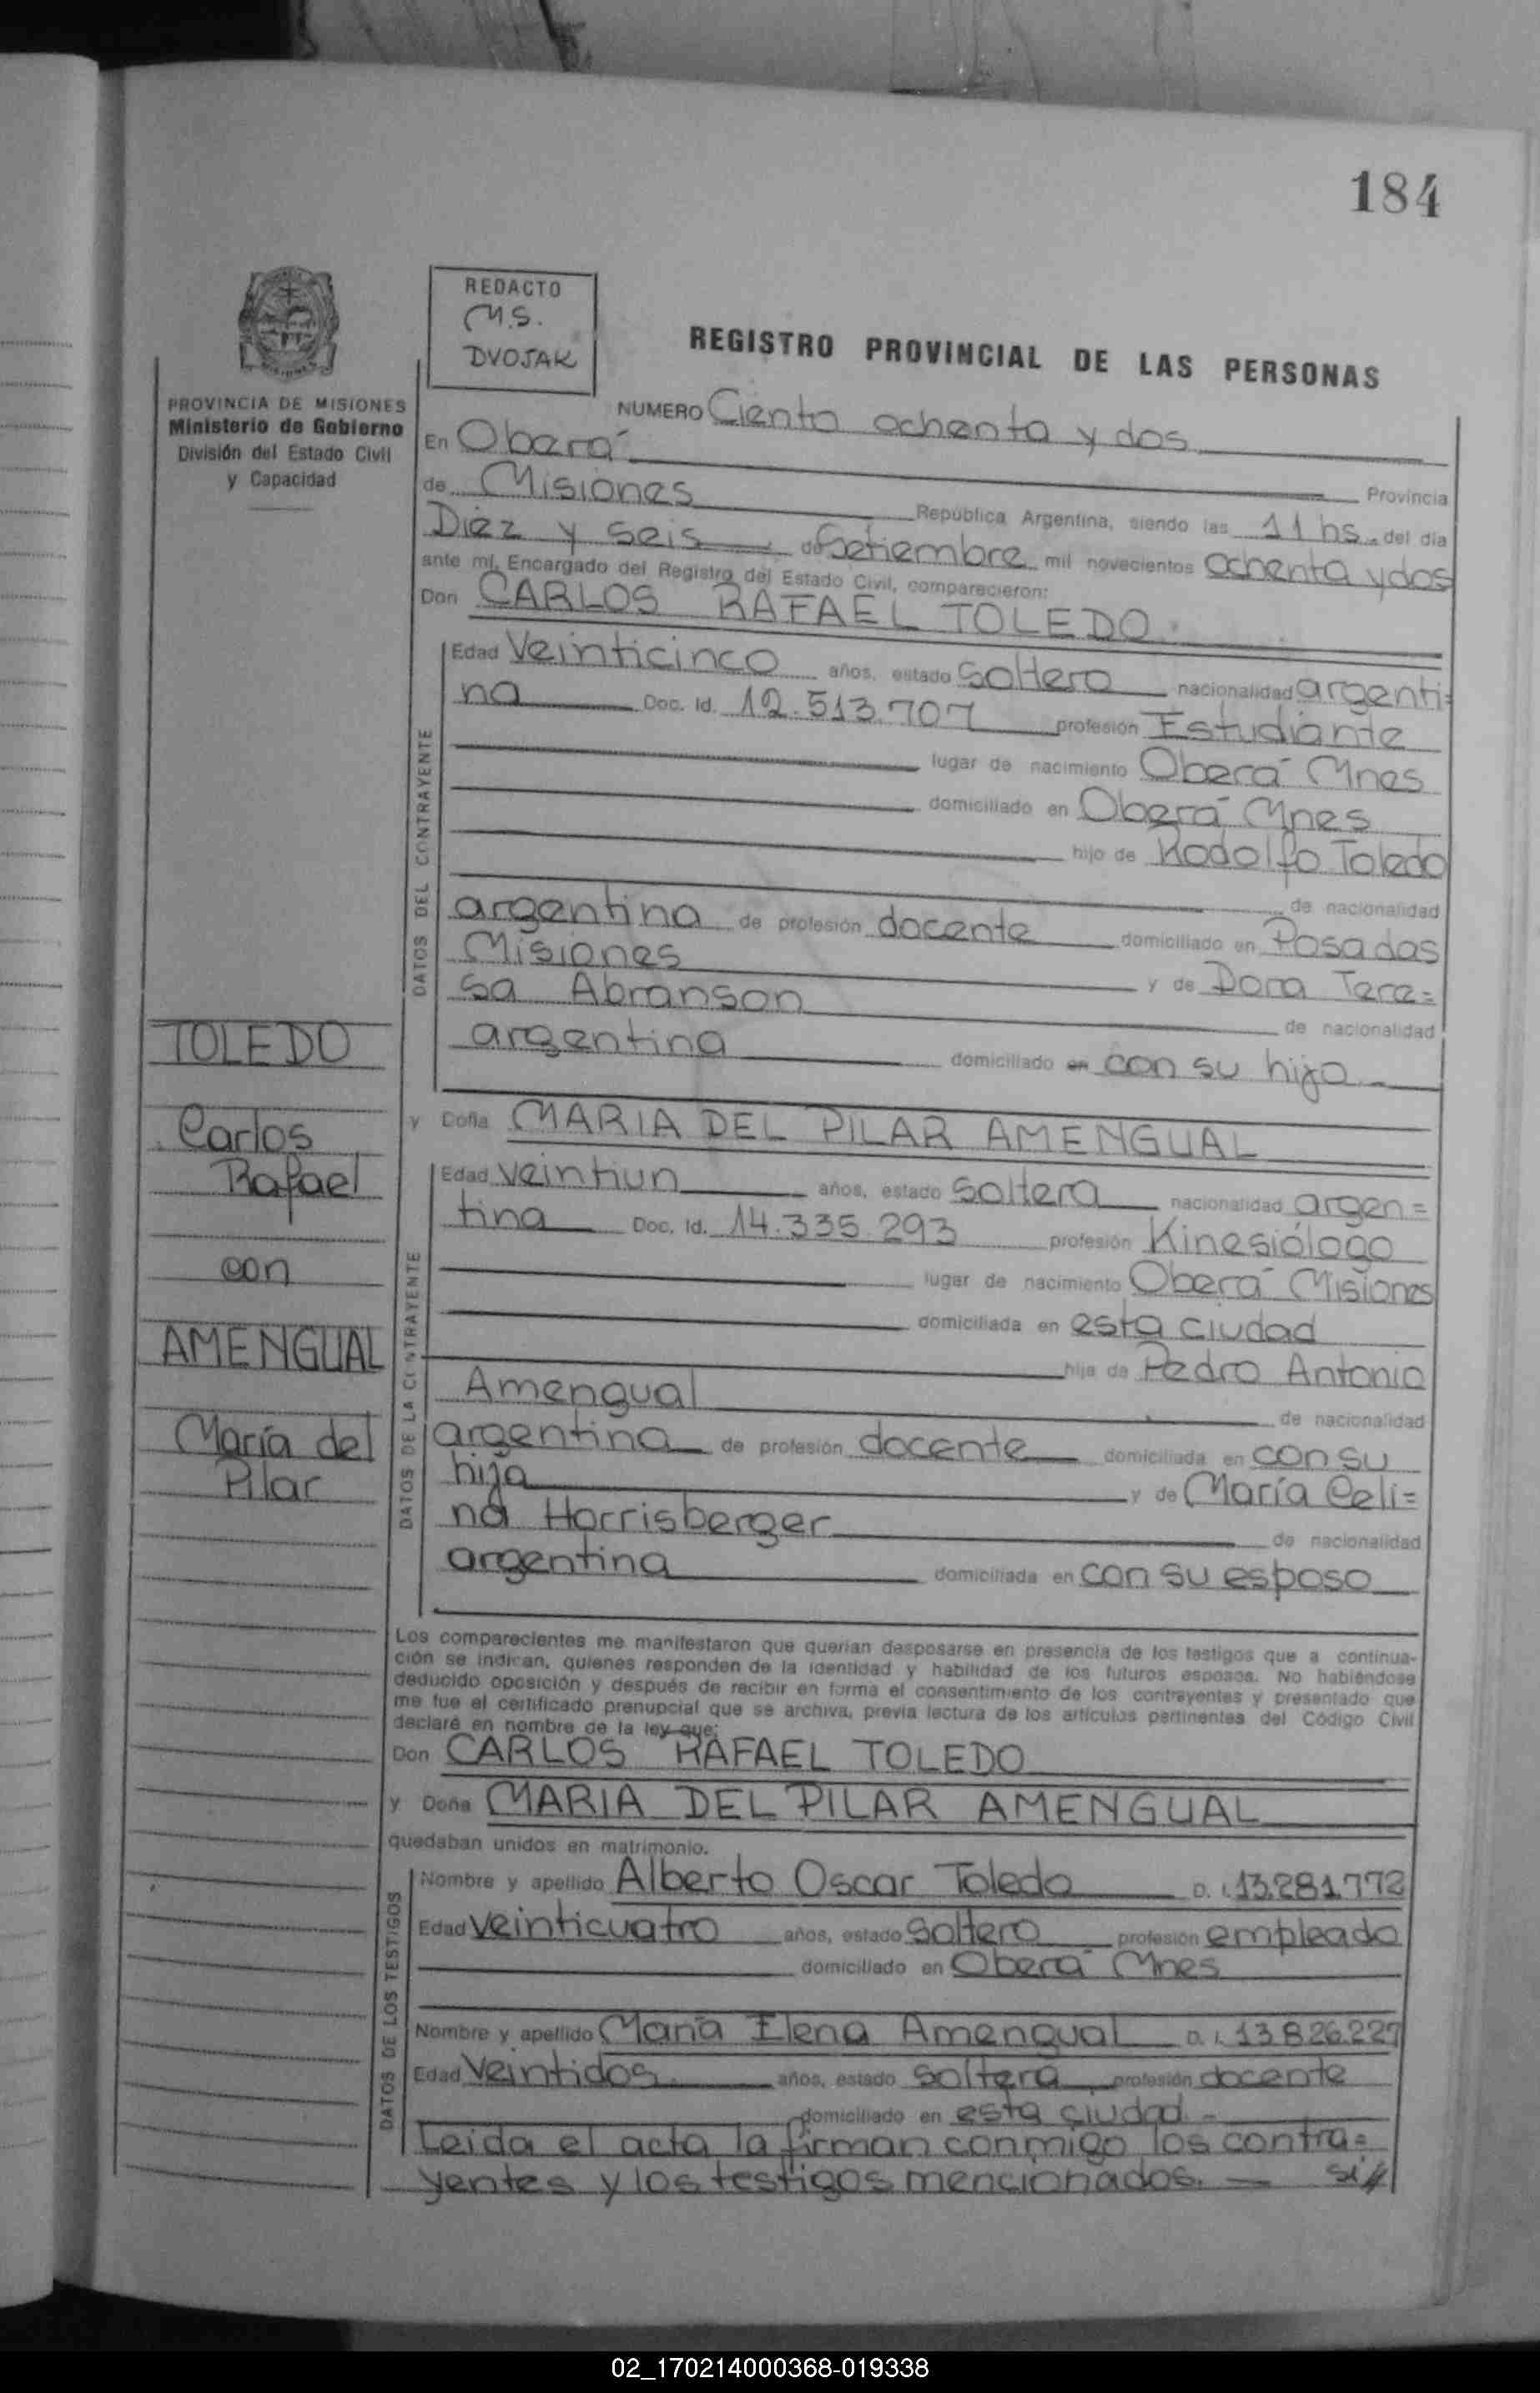 184
REDACTO
M.S.
DVOJAK
REGISTRO PROVINCIAL DE LAS PERSONAS
PROVINCIA DE MISIONES
Ministerio de Gobierno
División del Estado Civil
y Capacidad
NUMERO Ciento ochenta y dos
En Oberá Provincia
de Misiones República Argentina, siendo las 11 hs. del día
Diez y seis de Setiembre mil novecientos Ochenta y dos
ante mí, Encargado del Registro del Estado Civil, comparecieron:
Don CARLOS RAFAEL TOLEDO
DATOS DEL CONTRAYENTE
Edad Veinticinco años, estado Soltero nacionalidad argenti=
na Doc. Id. 12.513.707 profesión Estudiante
lugar de nacimiento Oberá Mnes
domiciliado en Oberá Mnes
hijo de Rodolfo Toledo
de nacionalidad
argentina de profesión docente domiciliado en Posadas
Misiones y de Dora Tere=
sa Abranson de nacionalidad
argentina domiciliado en con su hijo
y Doña MARIA DEL PILAR AMENGUAL
DATOS DE LA CONTRAYENTE
Edad Veintiun años, estado Soltera nacionalidad argen=
tina Doc. Id. 14.335.293 profesión Kinesiólogo
lugar de nacimiento Oberá Misiones
domiciliada en esta ciudad
hija de Pedro Antonio
Amengual de nacionalidad
argentina de profesión docente domiciliada en con su
hija y de María Celi=
na Horrisberger de nacionalidad
argentina domiciliada en con su esposo
TOLEDO
Carlos
Rafael
con
AMENGUAL
María del
Pilar
Los comparecientes me manifestaron que querían desposarse en presencia de los testigos que a continua-
ción se indican, quienes responden de la identidad y habilidad de los futuros esposos. No habiéndose
deducido oposición y después de recibir en forma el consentimiento de los contrayentes y presentado que
me fue el certificado prenupcial que se archiva, previa lectura de los artículos pertinentes del Código Civil
declaré en nombre de la ley que:
Don CARLOS RAFAEL TOLEDO
y Doña MARIA DEL PILAR AMENGUAL
quedaban unidos en matrimonio.
DATOS DE LOS TESTIGOS
Nombre y apellido Alberto Oscar Toledo D. I. 13.281.772
Edad Veinticuatro años, estado Soltero profesión empleado
domiciliado en Oberá Mnes
Nombre y apellido María Elena Amengual D. I. 13.826.227
Edad Veintidos años, estado Soltera profesión docente
domiciliado en esta ciudad.
Leida el acta la firman conmigo los contra=
yentes y los testigos mencionados.
02_170214000368-019338